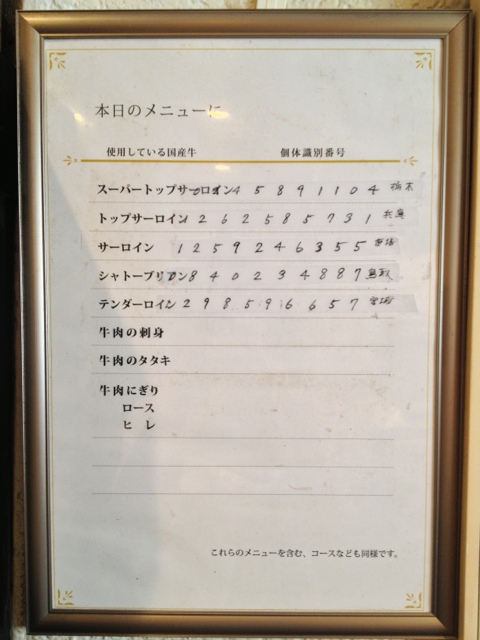 本日のメニューに
使用している国産牛 個体識別番号
スーパートップサーロイン 4 5 8 9 1 1 0 4 栃木
トップサーロイン 1 2 6 2 5 8 5 7 3 1 兵庫
サーロイン 1 2 5 9 2 4 6 3 5 5
シャトーブリアン 8 4 0 2 3 4 8 8 7 鳥取
テンダーロイン 2 9 8 5 9 6 6 5 7
牛肉の刺身
牛肉のタタキ
牛肉にぎり
ロース
ヒレ
これらのメニューを含む、コースなども同様です。